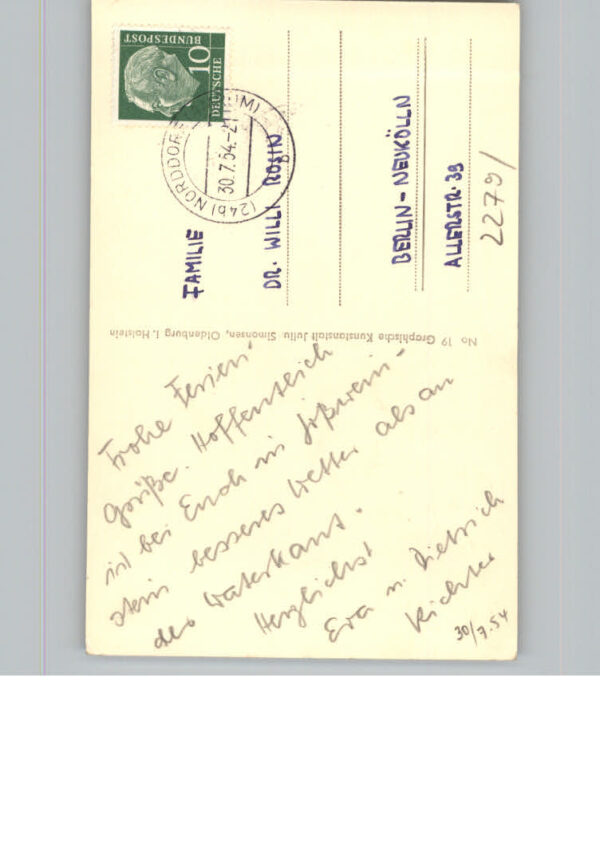 DEUTSCHE
BUNDESPOST
10
(24b) NORDDORF
30.7.54.-21
FAMILIE
DR. WILLI ROSIN
BERLIN-NEUKÖLLN
ALLERSTR. 39
2279/
No 19 Graphische Kunstanstalt Julius Simonsen, Oldenburg i. Holstein
Frohe Ferien-
Grüße. Hoffentlich
ist bei Euch in
stein besseres Wetter als an
der Waterkant.
Herzlichst
Eva u. Dietrich
Richter
30/7.54